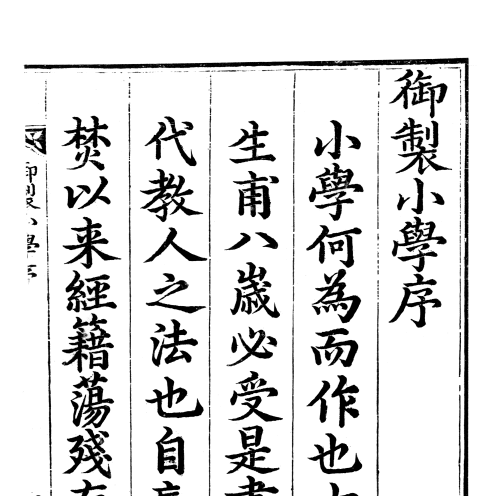 御製小學序
小學何為而作也
生甫八歲必受是書
代教人之法也自
焚以来經籍蕩殘
御製小學序